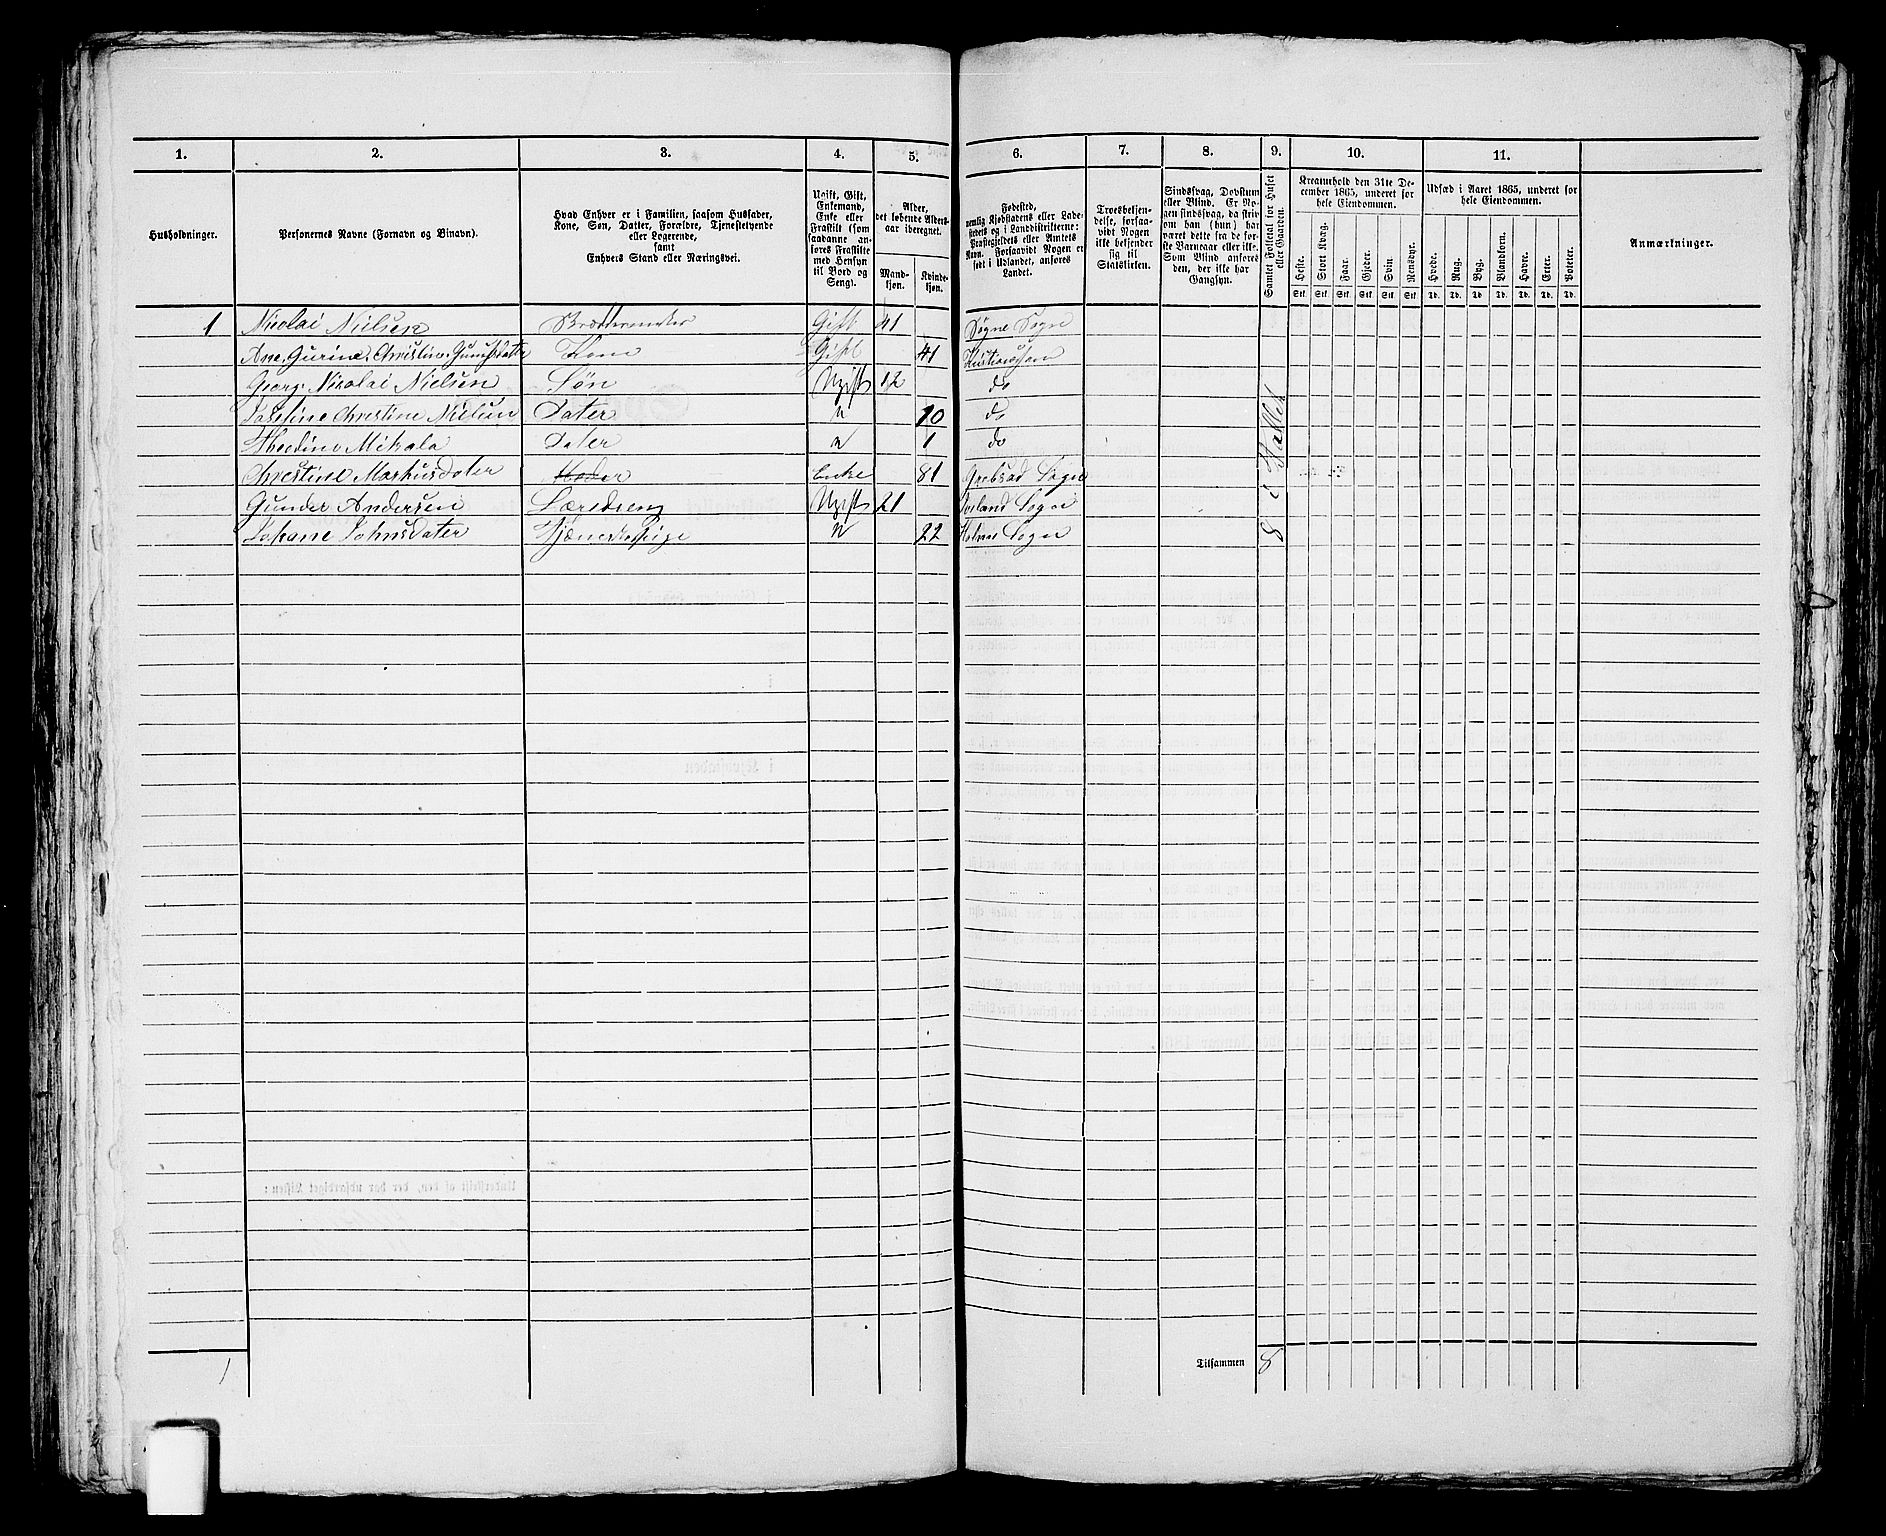 1. 2. 3. 4. 5. 6. 7. 8. 9. 10. 11.
Husholdninger.
Personernes Navne (Fornavn og Binavn).
Hvad Enhver er i Familien, saasom Husfader,
Kone, Søn, Datter, Forældre, Tjenestetyende
eller Logerende,
samt
Enhvers Stand eller Næringsvei.
Ugift, Gift,
Enkemand,
Enke eller
Fraskilt (som
saadanne an-
føres Fraskilte
med Hensyn
til Bord og
Seng).
Alder,
det løbende Alders-
aar iberegnet.
Mand-
kjøn.
Kvinde-
kjøn.
Fødested,
nemlig Kjøbstadens eller Lade-
stedets og i Landdistrikterne:
Præstegjeldets eller Amtets
Navn. Forsaavidt Nogen er
født i Udlandet, anføres
Landet.
Troesbekjen-
delse, forsaa-
vidt Nogen
ikke bekjender
sig til
Statskirken.
Sindssvag, Døvstum
eller Blind. Er No-
gen sindssvag, da skri-
ves om han (hun) har
været dette fra de før-
ste Barneaar eller ikke.
Som Blind anføres
den, der ikke har
Gangsyn.
Samlet Folketal for Huset
eller Gaarden.
Kreaturhold den 31te De-
cember 1865, underet for
hele Eiendommen.
Heste. Stort Kvæg. Faar. Gjeder. Svin. Rensdyr.
Stk. Stk. Stk. Stk. Stk. Stk.
Udsæd i Aaret 1865, underet for
hele Eiendommen.
Hvede. Rug. Byg. Blandkorn. Havre. Erter. Poteter.
Td. Td. Td. Td. Td. Td. Td.
Anmærkninger.
1 Nicolai Nielsen Gift 41 Søgne Sogn
Ane Gurine Christine Kone Gift 41 Kristiansand
Georg Nicolai Nielsen Søn Ugift 12 do
Josefine Christine Nielsen Dater u 10 do
Mikala Dater u 1 do
Christine Markusdater Moder Enke 81 Sogn
Gunder Andersen Læredreng Ugift 21 Sogn
Johane Johnsdater Tjenestepige u 22 Holme Sogn
8 i Tallet
1
Tilsammen 8